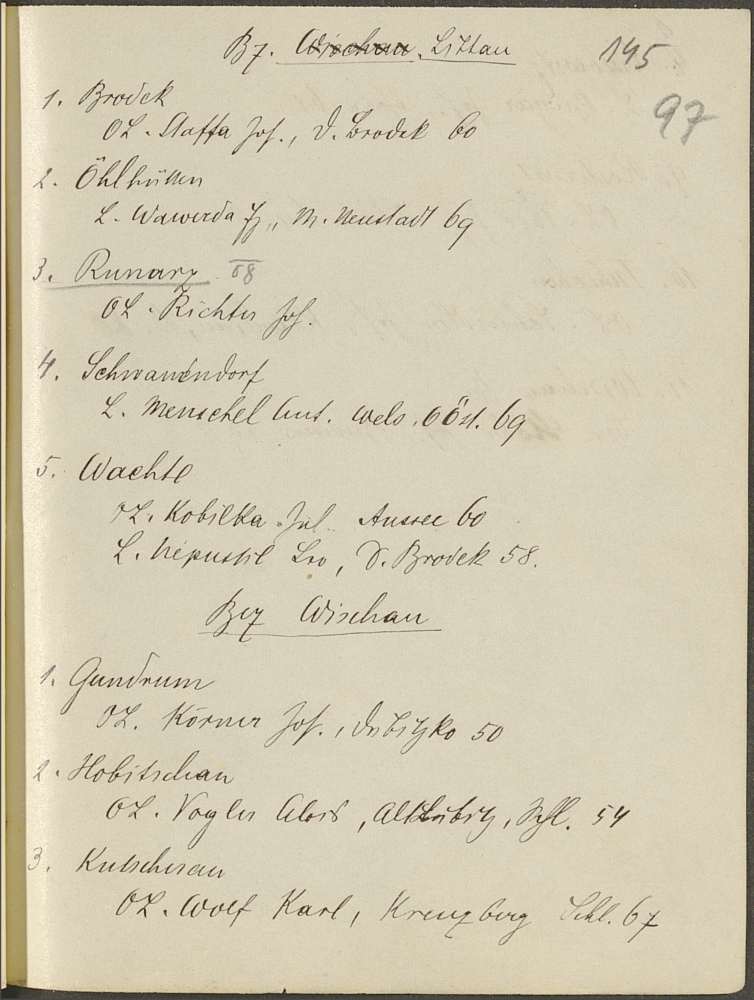 Bz. Wischau, Littau 145
97
1. Brodek
OL. Staffa Jos., D. Brodek 60
2. Öhlhütten
L. Wawerda Fz., M. Neustadt 69
3. Runarz 68
OL. Richter Jos.
4. Schwanendorf
L. Menschel Ant. Wels, OÖst. 69
5. Wachtl
OL. Kobilka Jul. Aussee 60
L. Nepustil Leo, D. Brodek 58.
Bez Wischau
1. Gundrum
OL. Körner Jos., 50
2. Hobitschau
OL. Vogler Alois, Schl. 54
3. Kutscherau
OL. Wolf Karl, Kreuzberg Schl. 67